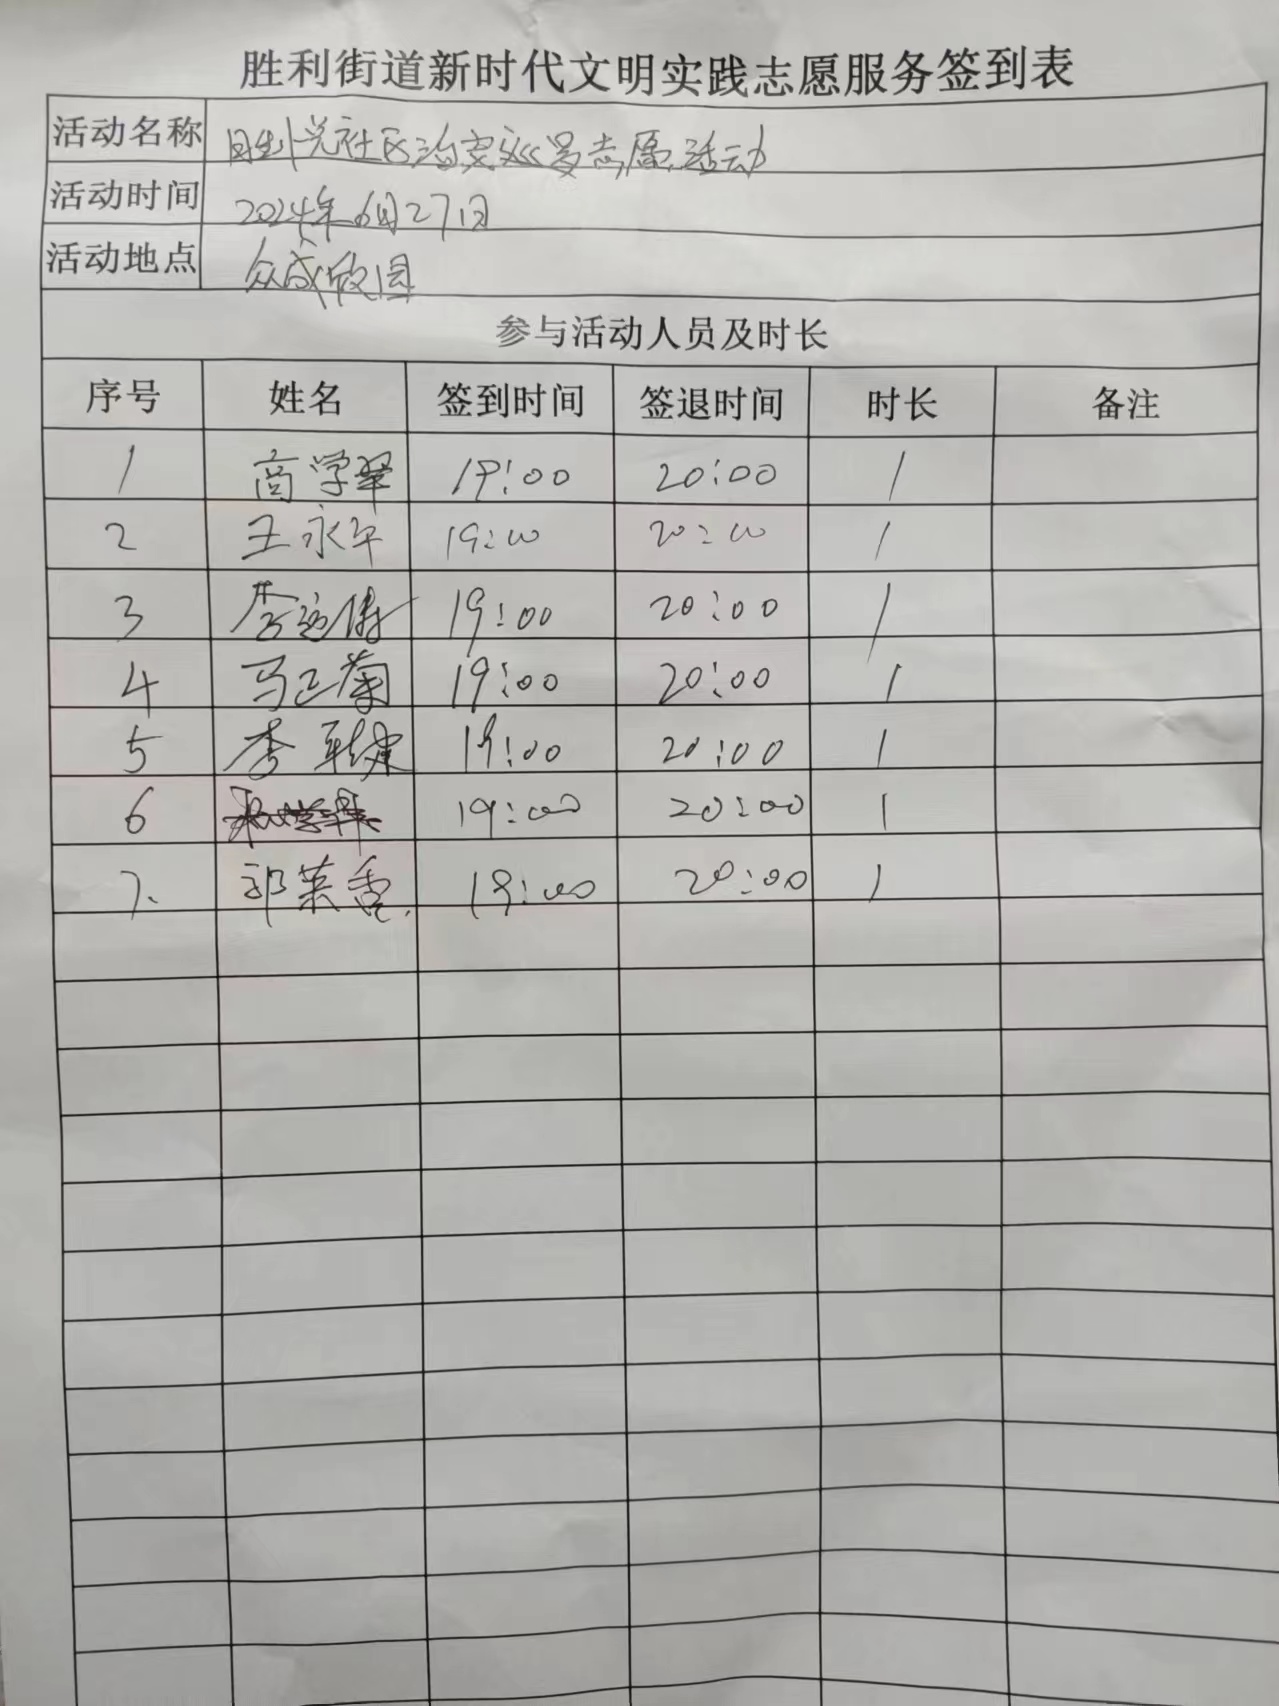 胜利街道新时代文明实践志愿服务签到表
活动名称 社区治安巡逻志愿活动
活动时间 2024年6月27日
活动地点 众成
参与活动人员及时长
序号 姓名 签到时间 签退时间 时长 备注
1 商学翠 19:00 20:00 1
2 王永平 19:00 20:00 1
3 李 19:00 20:00 1
4 马正菊 19:00 20:00 1
5 李 19:00 20:00 1
6 19:00 20:00 1
7. 祁英香 19:00 20:00 1